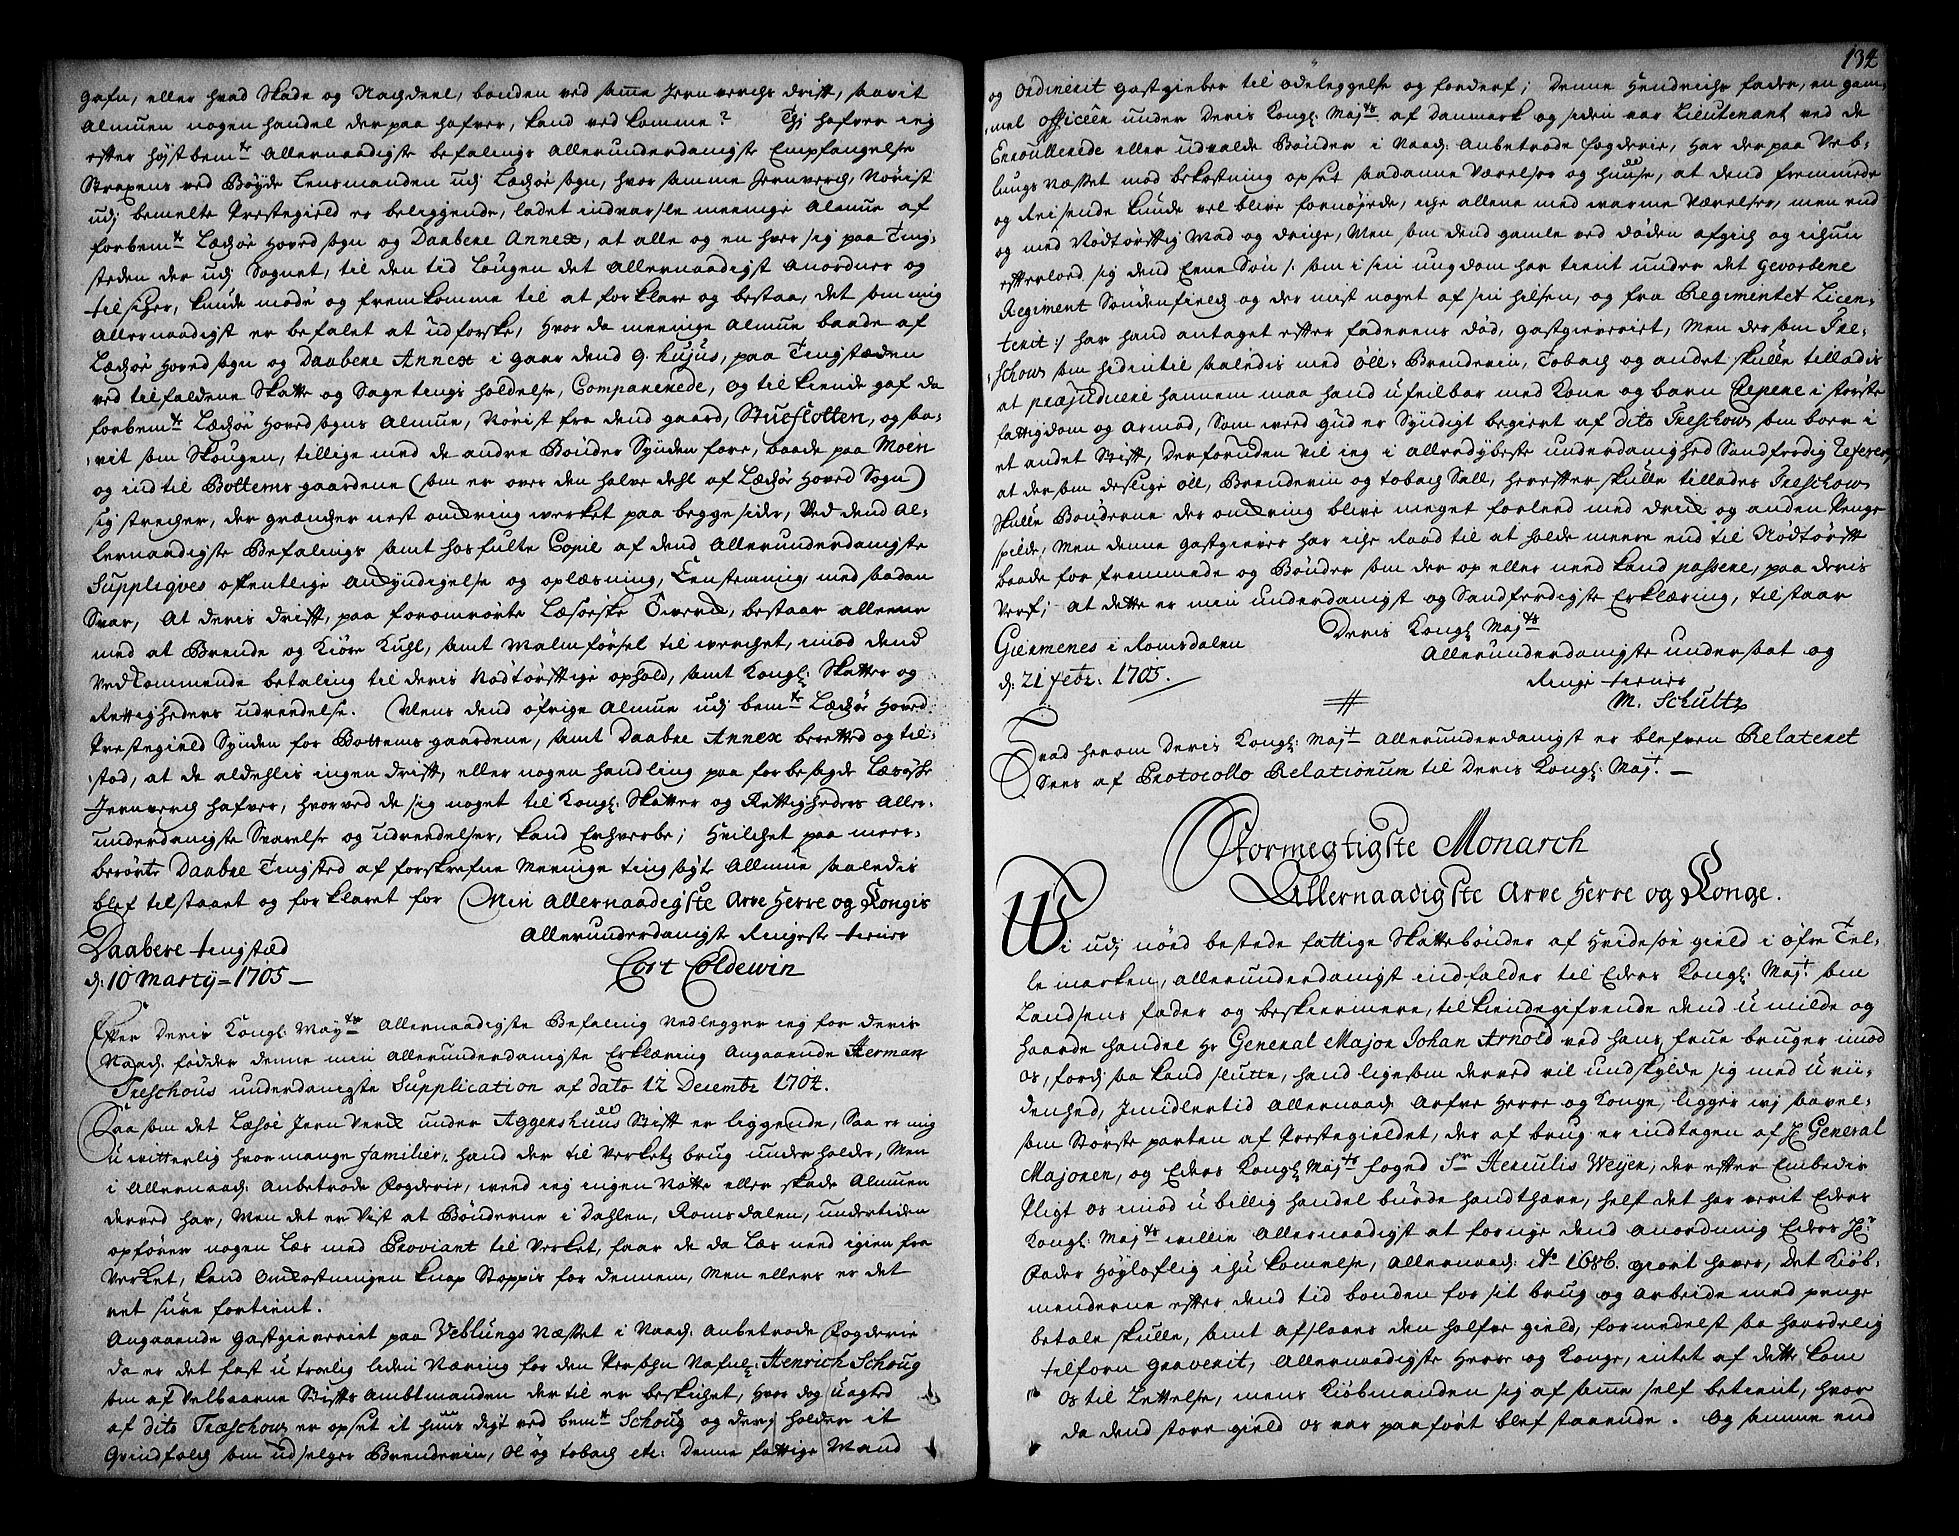 gafn, eller hvad Skade og Nachdeel, bonden ved samme Jernverchs drift, saavit
Almuen nogen handel der paa hafver, kand vedkomme? Thj hafver ieg
efter høystbemte Allernaadigste befalings Allerunderdanigste Empfangelse
Strapens ved Bøyde Lensmanden udj Læchøe Sogn, hvor samme Jernverch, Norist
udj bemelte Prestegield er beliggende, ladet indvarsle meenige Almue af
forbemte Læchøe Hovedsogn og Daabene Annex, at alle og en hver sig paa Ting-
steden der udj Sognet, til den tid Lougen det Allernaadigst Anordner og
tilsiger, kunde møde og fremkomme til at forklare og bestaa, det som mig
Allernaadigst er befalet at udforske, Hvor da meenige Almue baade af
Læchøe Hovedsogn og Daabene Annex i gaar dend 9. hujus, paa Tingstæden
ved tilfaldene Skatte og Sagetings holdelse, Comparerede, og tilkiende gaf da
forbemte Læchøe Hovedsogns Almue, Norist fra dend gaard, Stuefloten, og saa-
vit som Skougen, tillige med de andre Bønder Synden fore, baade paa Moen
og ind til Bottems gaardene (som er over den halve dehl af Læchøe Hoved Sogn)
sig strecher, der grændser nest omkring verket paa begge sider, Ved dend Al-
lernaadigste Befalings samt hosfulte Copie af dend Allerunderdanigste
Suppliqves offentlige Ankyndigelse og oplæsning, Eenstemmig, med saadan
Svar, At deris drift, paa foromrørte Læsøeske Verck, bestaar alleene
med at Brende og Kiøre Kuhl, samt Malmførsel til verchet, imod dend
Vedkommende betaling til deris Nødtørftige ophold, samt Kongl: Skatter og
Rettigheders udreedelse. Mens dend øfrige Almue udj bemte Læchøe Hoved
Prestegield Synden for Bottems gaardene, samt Daabne Annex berettede og til-
stod, at de aldehlis ingen drift, eller nogen handling paa forbesagde Læsøeske
Jernverch hafver, hvorved de sig noget til Kongl: Skatter og Rettigheders Aller-
underdanigste Svarelse og udreedelser, kand Erhverbe; Hvilchet paa meer-
berørte Daabne Tingsted af forskrefne Meenige tingsøgte Almue saaledis
blef tilstaaet og forklaret for Min Allernaadigste Arve Herre og Kongis
Daabene tingstæd Allerunderdanigste Ringeste tiener
d: 10 Marty = 1705 — Cort Coldewin
Efter Deris Kongl: Mayts Allernaadigste Befaling Nedlegger ieg for deris
Naad: fødder denne min Allerunderdanigste Erklæring Angaaende Herman
Treschous underdanigste Supplication af dato 12 Decembr 1704.
Saasom det Læsøe Jern Verck under Aggershuus Stift er liggende, Saa er mig
uvitterlig hvor mange familier, hand der til Verkets brug underholder, Men
i Allernaad: Anbetrode Fogderie, veed ieg ingen Nøtte eller skade Almuen
derved har, Men det er Vist at Bønderne i Dahlen, Romsdalen, undertiden
opfører nogen Læs med Proviant til Verket, faar de da Læs need igien fra
Verket, kand Omkostningen knap Stoppis for dennem, Men ellers er det
ret suve fortient.
Angaaende gastgieveriet paa Veblungs Næsset i Naad: Anbetrode Fogderie
da er det fast utroelig liden Næring for den Persohn Nafnl: Henrich Schoug
som af Velbaarne Stifts Ambtmanden der til er beskichet, hvor dog uagted
af dito Treschow er opset it huus digt ved bemte Schoug og derj holder it
Qvindfolch som udselger Brendeviin, Øl og tobach etc: Denne fattige Mand
134
og Ordinerit gastgieber til ødeleggelse og forderf; Denne Hendrichs fader, en gam-
mel Officeer under Deris Kongl: Mayts af Danmark og siden var Lieutenant ved de
Enroullerede eller udvalde Bønder i Naad: Anbetrode fogderie, har der paa Veb-
lungs Næsset med bekostning opset saadanne Værelser og huuse, at dend fremmede
og Reisende kunde vel blive fornøjede, iche allene med varme Værelser, men end
og med Nødtørftig Mad og driche, Men som dend gamle ved døden afgich og ichun
efterloed sig dend Eene Søn /: som i sin ungdom har tient under det Gevorbene
Regiment Søndenfields og der mist noget af sin helsen, og fra Regimentet Licen-
terit :/ har hand antaget efter faderens død, gastgieveriet, Men dersom Tre-
schow som hidintil saaledis med Øll, Brendeviin, Tobach og andet skulle tilladis
at præjudicere hannem maa hand ufeilbar med Kone og barn Crepere i største
fattigdom og armod, Som imod gud er Syndigt begiert af dito Treschow som boer i
et andet Stift, Derforuden vil ieg i allerdybeste underdanighed Sandfærdig referere
at dersom deslige Øll, Brendeviin og tobach Sall, herefter skulle tillades Treschow
Skulle Bønderne der omkring blive meget forleed med drick og anden Penge
spilde, Men denne gastgiever har iche Raad til at holde meere end til Nødtørft
baade for fremmede og Bønder som der op eller need kand passere, paa deris
Verf; At dette er min underdanigst og Sandferdigste Erklæring, tilstaar
Deris Kongl: Mayts
Giermenes i Romsdalen Allerunderdanigste undersaat og
d: 21 febr: 1705. Ringe tiener
M. Schultz
Hvad herom Deris Kongl: Mayt Allerunderdanigst er blefven Relateret
Sees af Protocollo Relationum til Deris Kongl: Mayt. —
Stormegtigste Monarch
Allernaadigste Arve Herre og Konge.
Wi udj nøed bestede fattige Skattebønder af Hvidesøe gield i øfre Tel-
lemarken, allerunderdanigst indfalder til Eders Kongl: Mayt som
Landsens fader og beskiermere, tilkiendegifvende dend umilde og
haarde handel Hr General Major Johan Arnold ved hans frue bruger imod
os, fordj saa kand slutte, hand ligesom derved vil undskylde sig med uvii-
denhed, Imidlertid Allernaad: Arfve Herre og Konge, ligger vj saavel-
som Største parten af Prestegieldet, der af brug er indtagen af H: General
Majoren, og Eders Kongl: Mayts foged Sr Herculis Weyer, der efter Embedis
Pligt os imod ubillig handel burde handthære, helst det har verit Eders
Kongl: Mayts villie Allernaadigst at fornye dend anordning Eders Hr
Fader Høyloflig ihukommelse, Allernaad: Ao 1686. giort haver, Det Kiøb-
menderne efter dend tid bonden for sit brug og arbeide med penge
betale skulle, samt Afslaaes den halfve gield, formedelst saa haardelig
tilforn graverit, Allernaadigste Herre og Konge, intet af dette kom
os til Lettelse, mens Kiøbmanden sig af samme self betient, hvor
da dend store gield os var paaført blef staaende. Og samme end